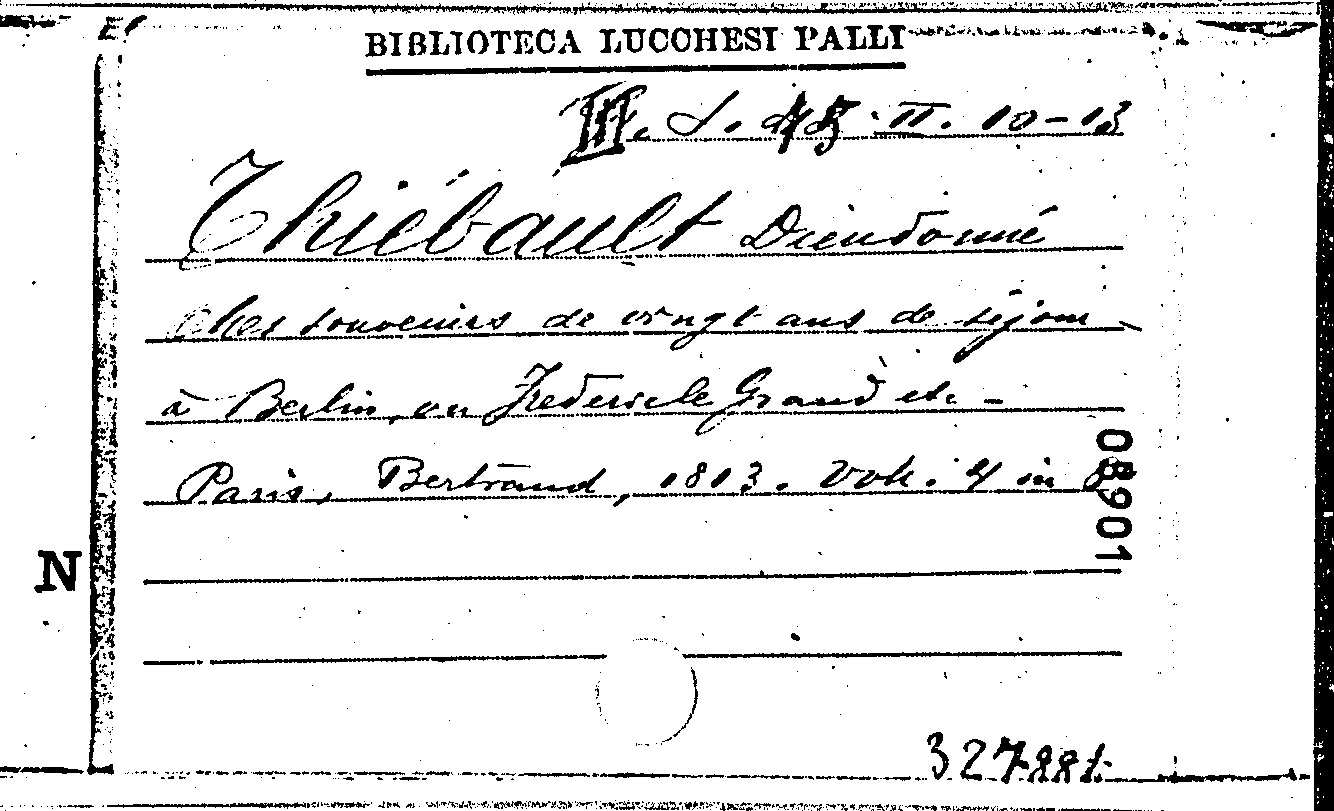 BIBLIOTECA LUCCHESI PALLI
III. II. 10-13
Thiébault Dieudonné
Mes souvenirs de vingt ans de séjour
à Berlin, ou Frederic le Grand etc -
Paris, Bertrand, 1813. Voll. 4 in 8
08901
N